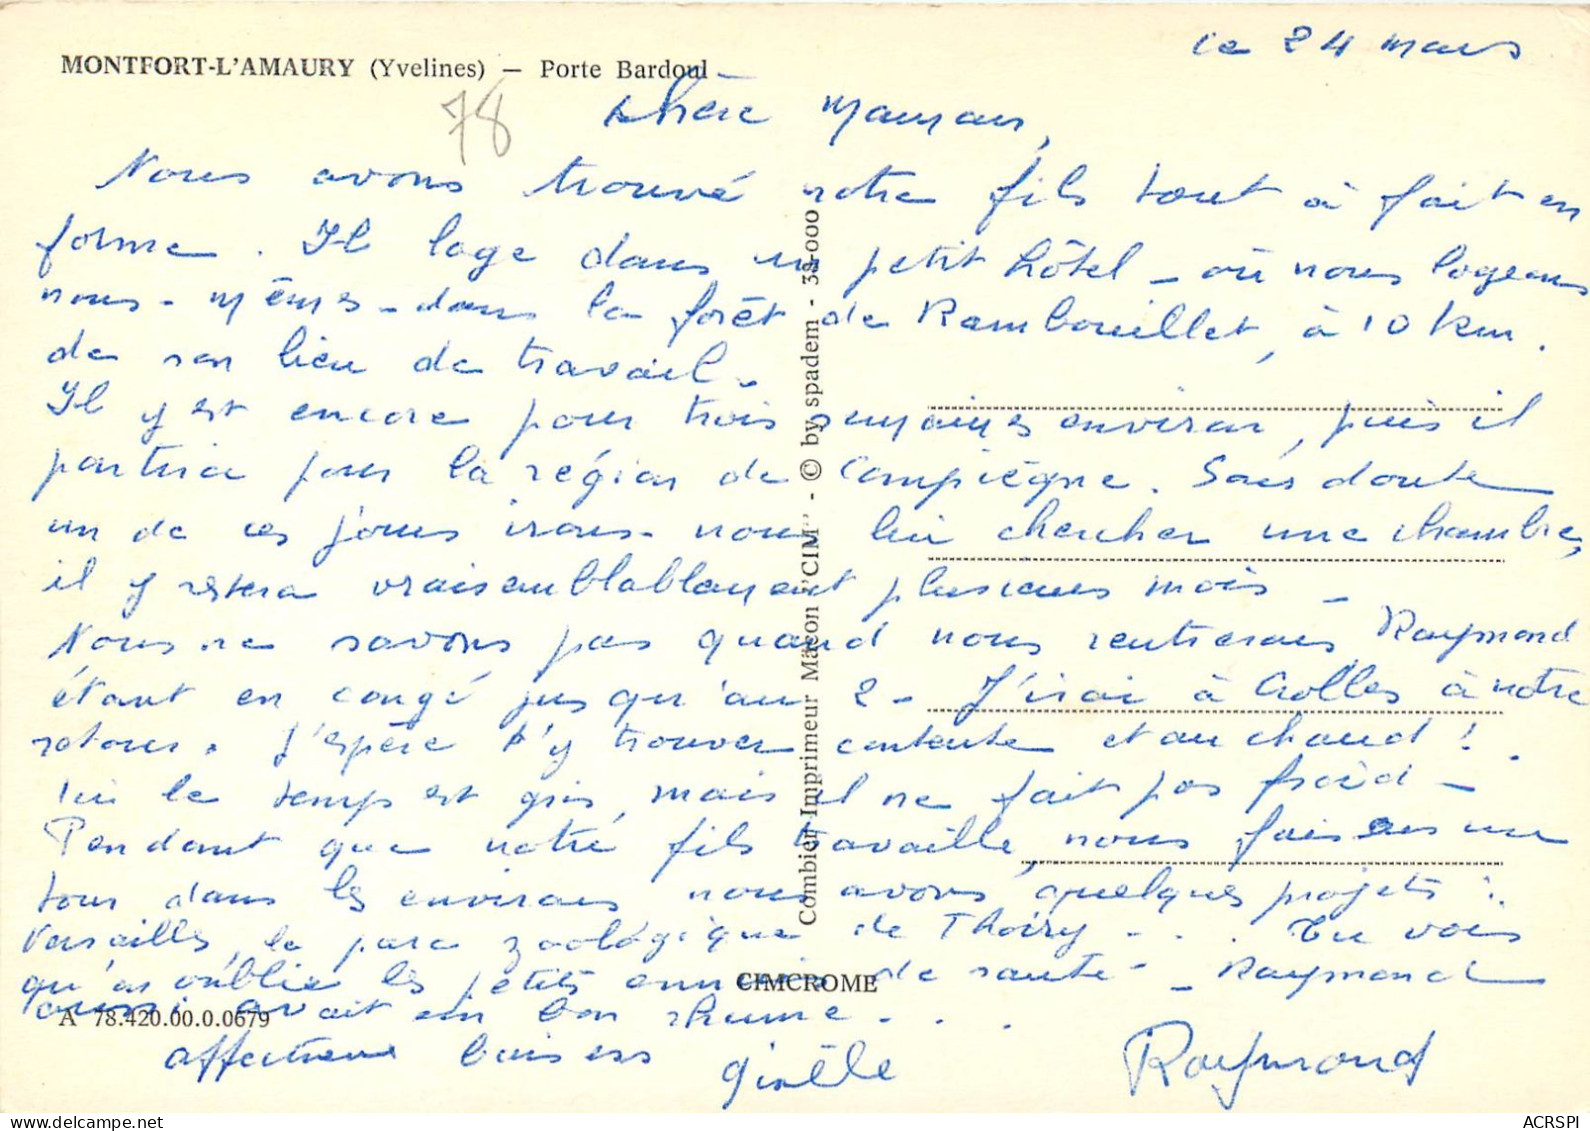 le 24 mars
MONTFORT-L'AMAURY (Yvelines) — Porte Bardoul
78
Chère Maman,
Nous avons trouvé notre fils tout à fait en
forme. Il loge dans un petit hôtel - où nous logeons
nous-mêmes - dans la forêt de Rambouillet, à 10 km.
de son lieu de travail.
Il y est encore pour trois semaines environ, puis il
partira pour la région de Compiègne. Sans doute
un de ces jours irons-nous lui chercher une chambre,
il y restera vraisemblablement plusieurs mois -
Nous ne savons pas quand nous rentrerons Raymond
étant en congé jusqu'au 2 - J'irai à Crolles à notre
retour. J'espère t'y trouver contente et au chaud !
Ici le temps est gris, mais il ne fait pas froid -
Pendant que notre fils travaille, nous faisons un
tour dans les environs nous avons quelques projets :
Versailles, le parc zoologique de Thoiry - . . . Tu vois
qu'on oublie les petits ennuis de santé - - Raymond
aussi avait un bon rhume - . .
affectueux baisers Gisèle Raymond
CIMCROME
A 78.420.00.0.0679
Combier Imprimeur Mâcon "CIM" - © by spadem - 38.000
ACRSPI